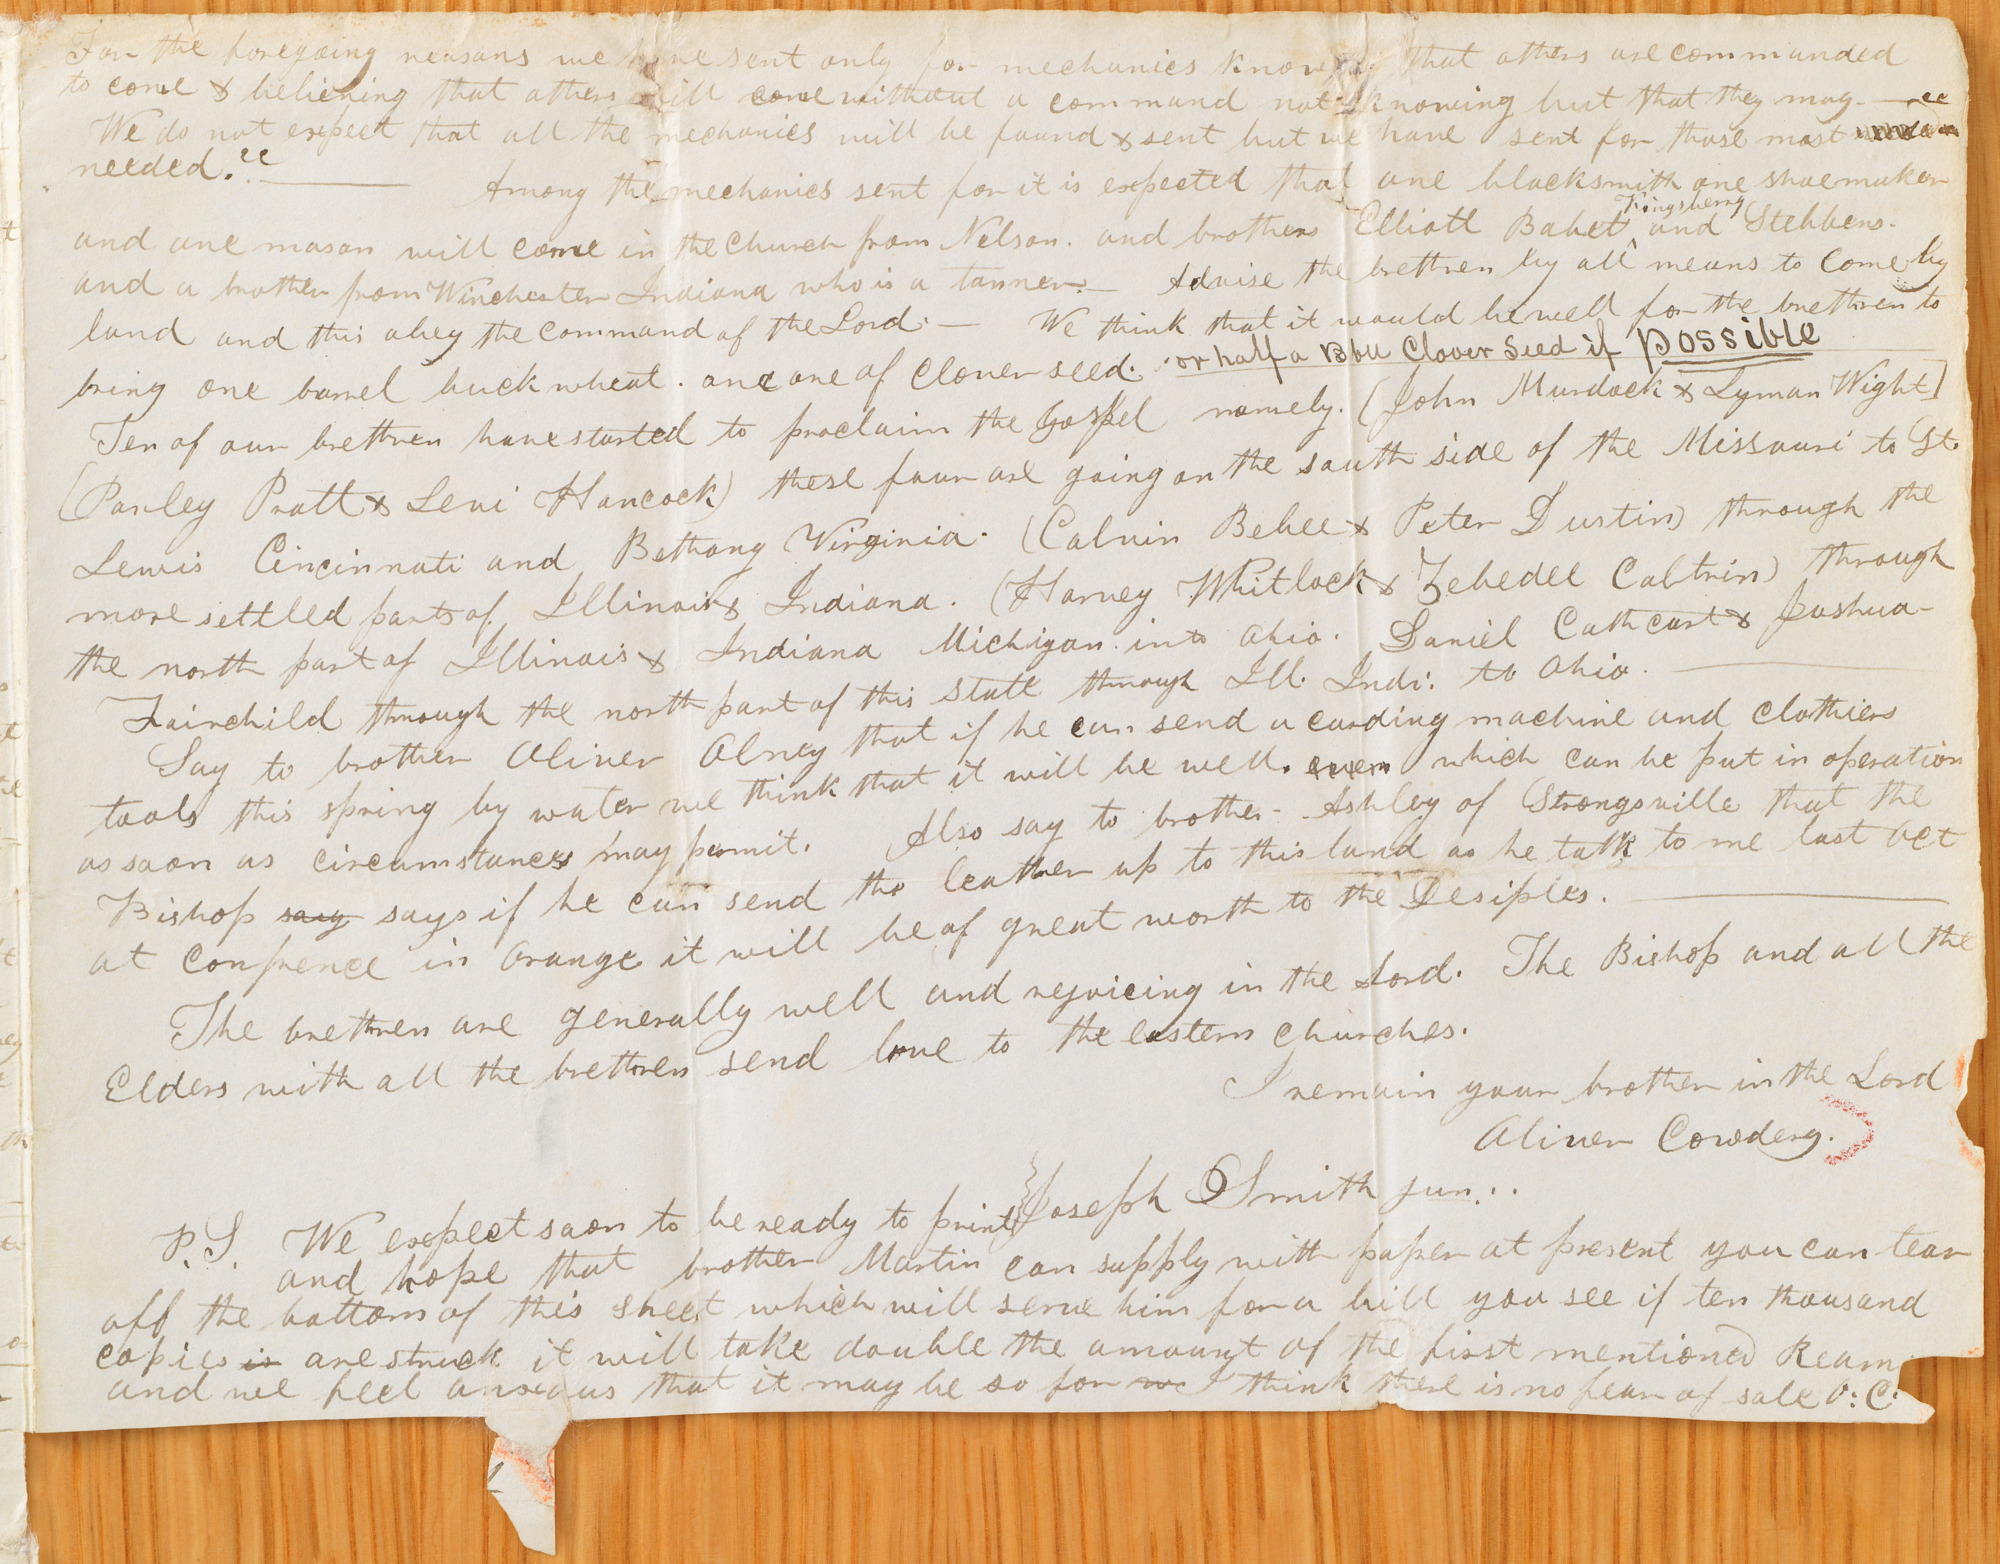 For the foregoing reasons we have sent only for mechanics knowing that others are commanded
to come & believing that others will come without a command not knowing but that they may. — "
We do not expect that all the mechanics will be found & sent but we have sent for those most
needed." —
Among the mechanics sent for it is expected that one blacksmith one shoemaker
and one mason will come in the church from Nelson. and brothers Elliott Babet Kingsberry and Stebbens.
and a brother from Winchester Indiana who is a tanner. — Advise the brethren by all means to come by
land and this obey the command of the Lord. — We think that it would be well for the brethren to
bring one barrel buckwheat. and one of clover seed. or half a Bbll Clover Seed if possible
Ten of our brethren have started to proclaim the Gospel namely. (John Murdock & Lyman Wight)
(Parley Pratt & Levi Hancock) these four are going on the south side of the Missouri to St.
Lewis Cincinnati and Bethany Virginia. (Calvin Bebee & Peter Dustin) through the
more settled parts of Illinois & Indiana. (Harvey Whitlock & Zebedee Coltrin) through
the north part of Illinois & Indiana Michigan into Ohio. Daniel Cathcart & Joshua-
Fairchild through the north part of this state through Ill. Indi. to Ohio. —
Say to brother Oliver Olney that if he can send a carding machine and clothiers
tools this spring by water we think that it will be well. even which can be put in operation
as soon as circumstances may permit. Also say to brother- Ashley of Strongsville that the
Bishop say says if he can send the leather up to this land as he talk to me last Oct
at confrence in Orange it will be of great worth to the Desiples. —
The brethren are generally well and rejoicing in the Lord. The Bishop and all the
Elders with all the brethren send love to the eastern churches.
I remain your brother in the Lord
Oliver Cowdery.
Joseph Smith jun..
P.S. We expect soon to be ready to print
and hope that brother Martin can supply with paper at present you can tear
off the bottom of this sheet which will serve him for a bill you see if ten thousand
copies is are struck it will take double the amount of the first mentioned Ream
and we feel anxious that it may be so for we I think there is no fear of sale O. C.